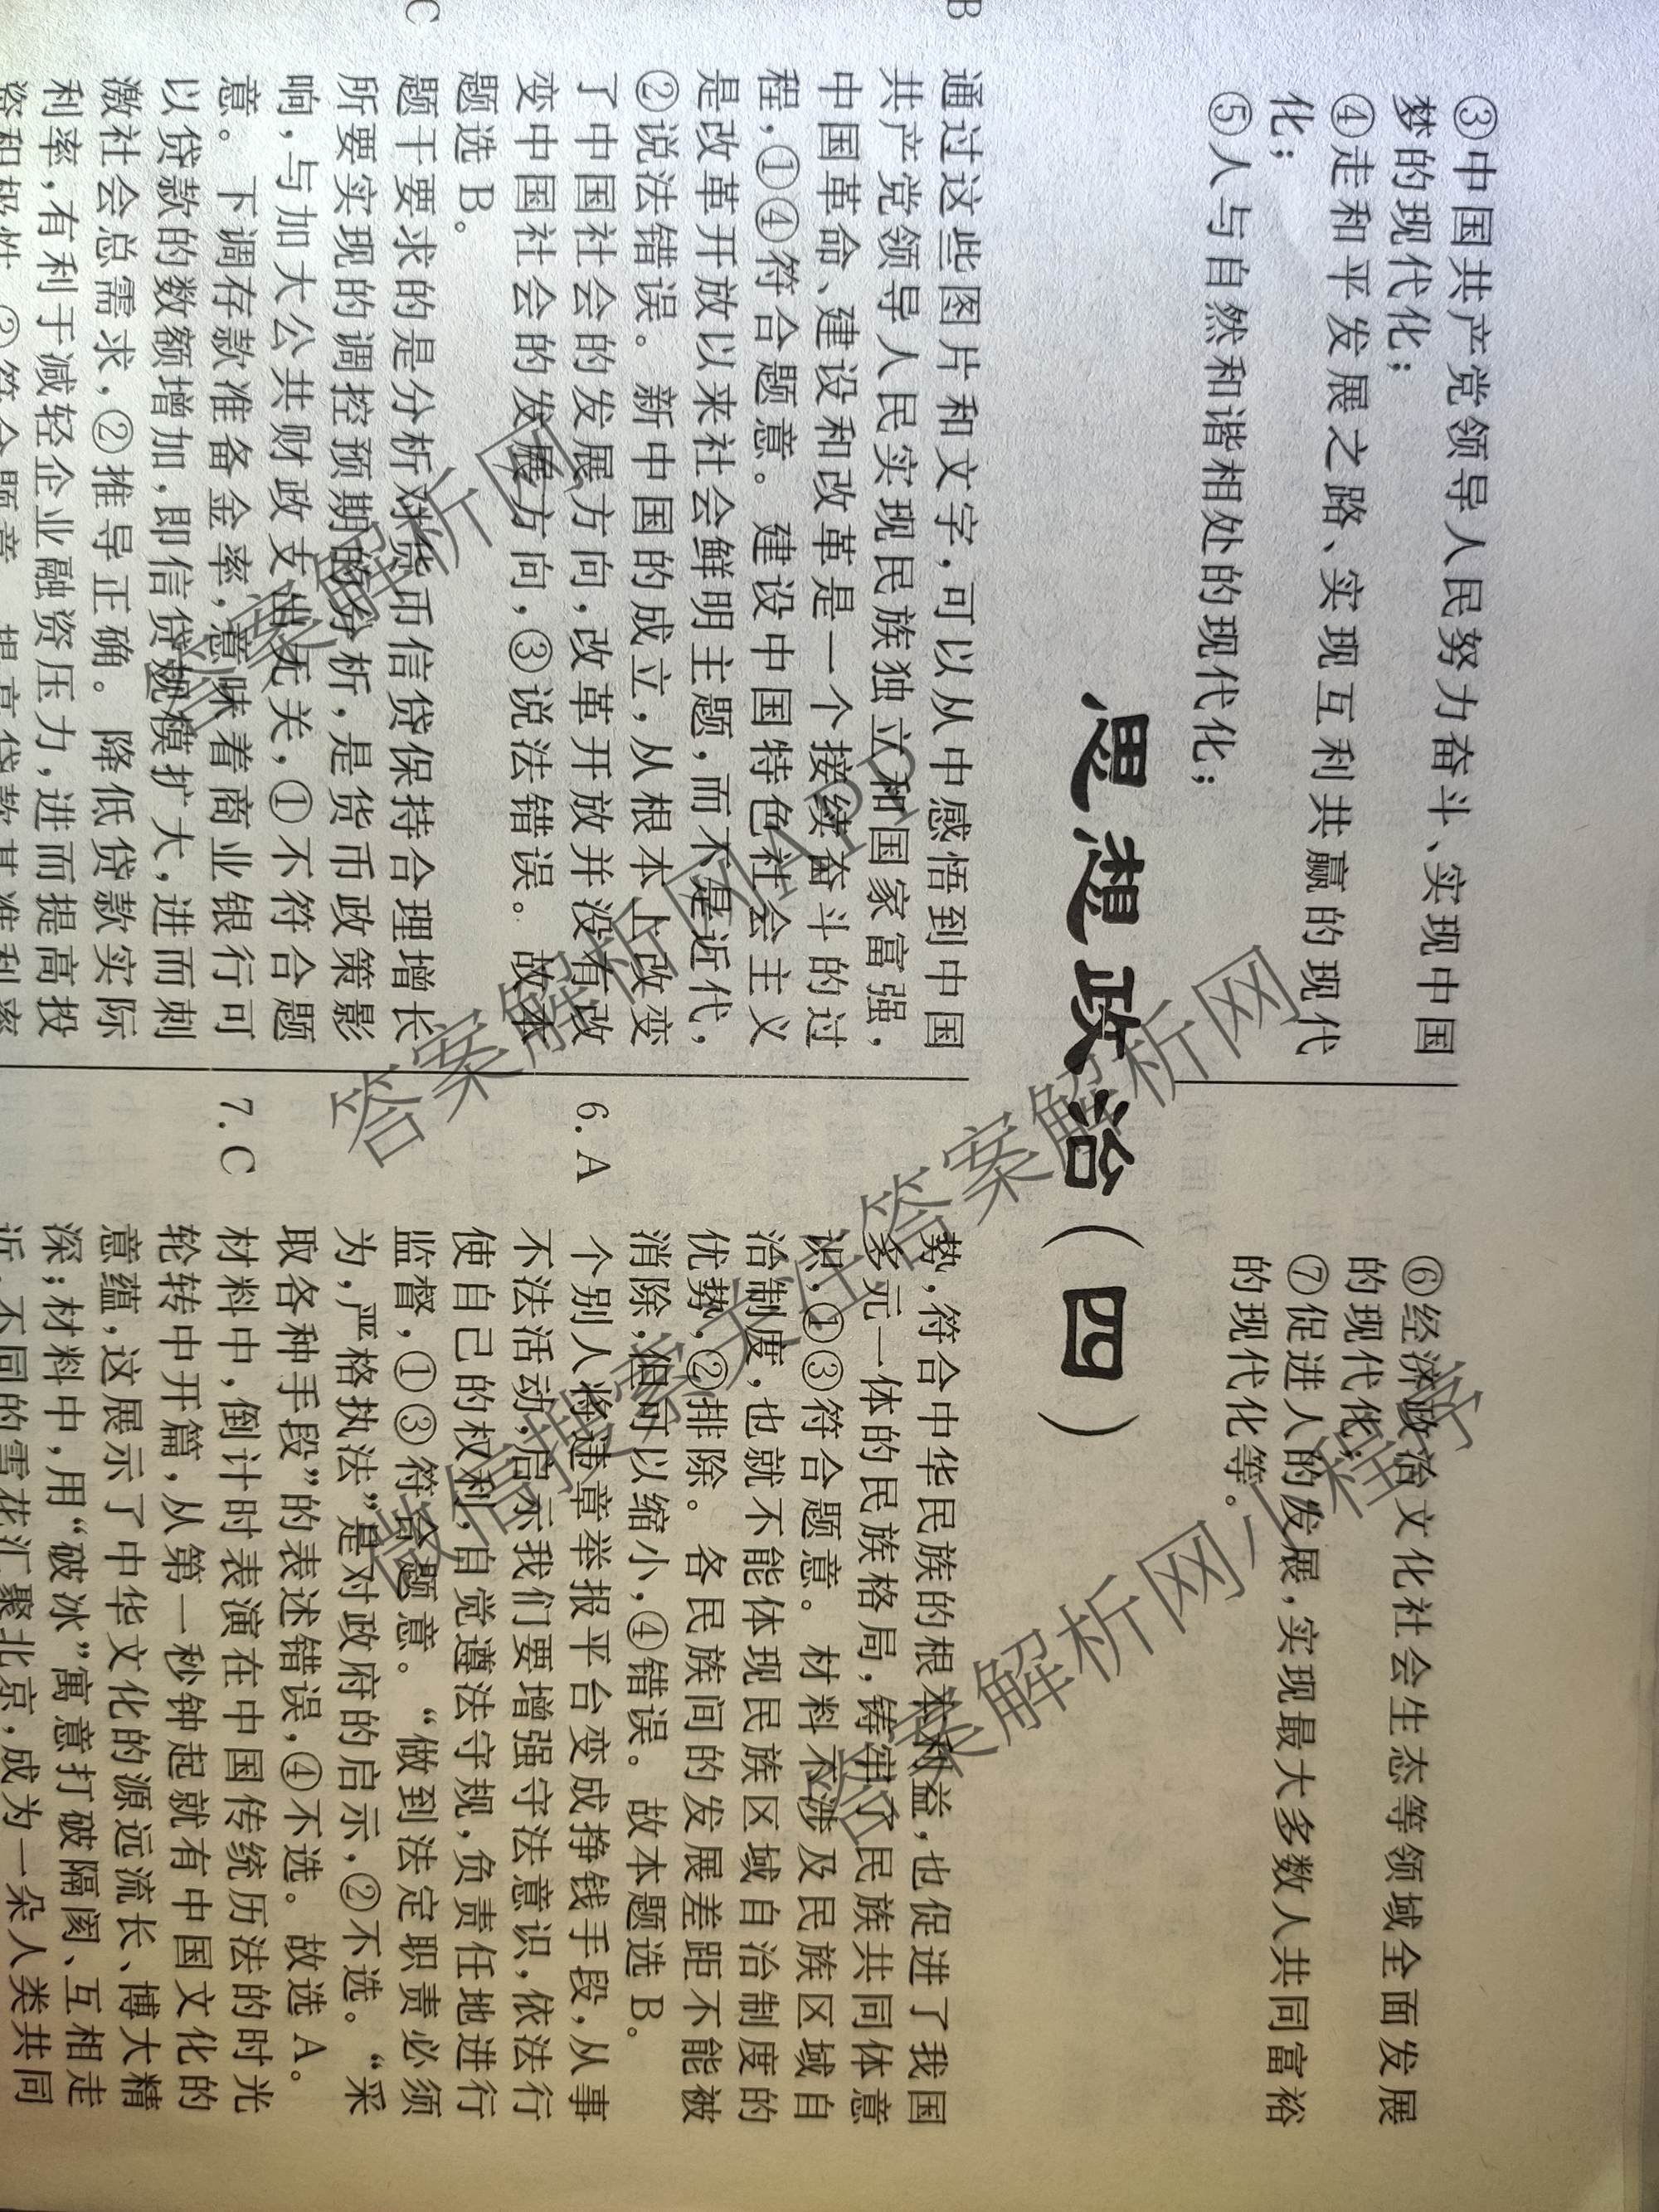 ③中国共产党领导人民努力奋斗、实现中国
梦的现代化；
④走和平发展之路、实现互利共赢的现代
化；
⑤人与自然和谐相处的现代化；
⑥经济政治文化社会生态等领域全面发展
的现代化；
⑦促进人的发展，实现最大多数人共同富裕
的现代化等。
思想政治（四）
B
通过这些图片和文字，可以从中感悟到中国
共产党领导人民实现民族独立和国家富强，
中国革命、建设和改革是一个接续奋斗的过
程，①④符合题意。建设中国特色社会主义
是改革开放以来社会鲜明主题，而不是近代，
②说法错误。新中国的成立，从根本上改变
了中国社会的发展方向，改革开放并没有改
变中国社会的发展方向，③说法错误。故本
题选 B。
C
题干要求的是分析对货币信贷保持合理增长
所要实现的调控预期的分析，是货币政策影
响，与加大公共财政支出无关，①不符合题
意。下调存款准备金率，意味着商业银行可
以贷款的数额增加，即信贷规模扩大，进而刺
激社会总需求，②推导正确。降低贷款实际
利率，有利于减轻企业融资压力，进而提高投
资积极性，③符合题意。提高贷款基准利率
势，符合中华民族的根本利益，也促进了我国
多元一体的民族格局，铸牢了民族共同体意
识，①③符合题意。材料不涉及民族区域自
治制度，也就不能体现民族区域自治制度的
优势，②排除。各民族间的发展差距不能被
消除，但可以缩小，④错误。故本题选 B。
6. A
个别人将违章举报平台变成挣钱手段，从事
不法活动，启示我们要增强守法意识，依法行
使自己的权利，自觉遵法守规，负责任地进行
监督，①③符合题意。“做到法定职责必须
为，严格执法”是对政府的启示，②不选。“采
取各种手段”的表述错误，④不选。故选 A。
7. C
材料中，倒计时表演在中国传统历法的时光
轮转中开篇，从第一秒钟起就有中国文化的
意蕴，这展示了中华文化的源远流长、博大精
深；材料中，用“破冰”寓意打破隔阂、互相走
近，不同的雪花汇聚北京，成为一朵人类共同
答案解析网
答案解析网